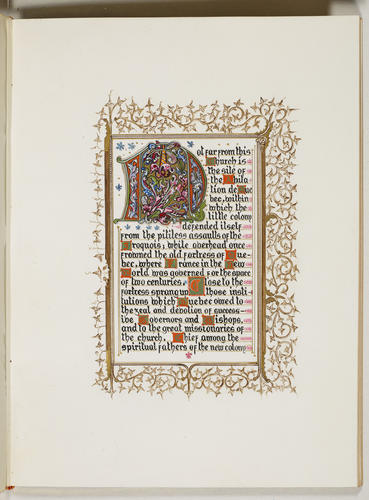 Not far from this
Church is
the site of
the Habita
tion de Que
bec, within
which the
little colony
defended itself
from the pitiless assaults of the
Iroquois; while overhead once
frowned the old fortress of Que-
bec, where France in the New
World was governed for the space
of two centuries. Close to the
fortress sprang up those insti-
tutions which Quebec owed to
the zeal and devotion of success-
ive Governors and Bishops,
and to the great missionaries of
the church. Chief among the
spiritual fathers of the new colony